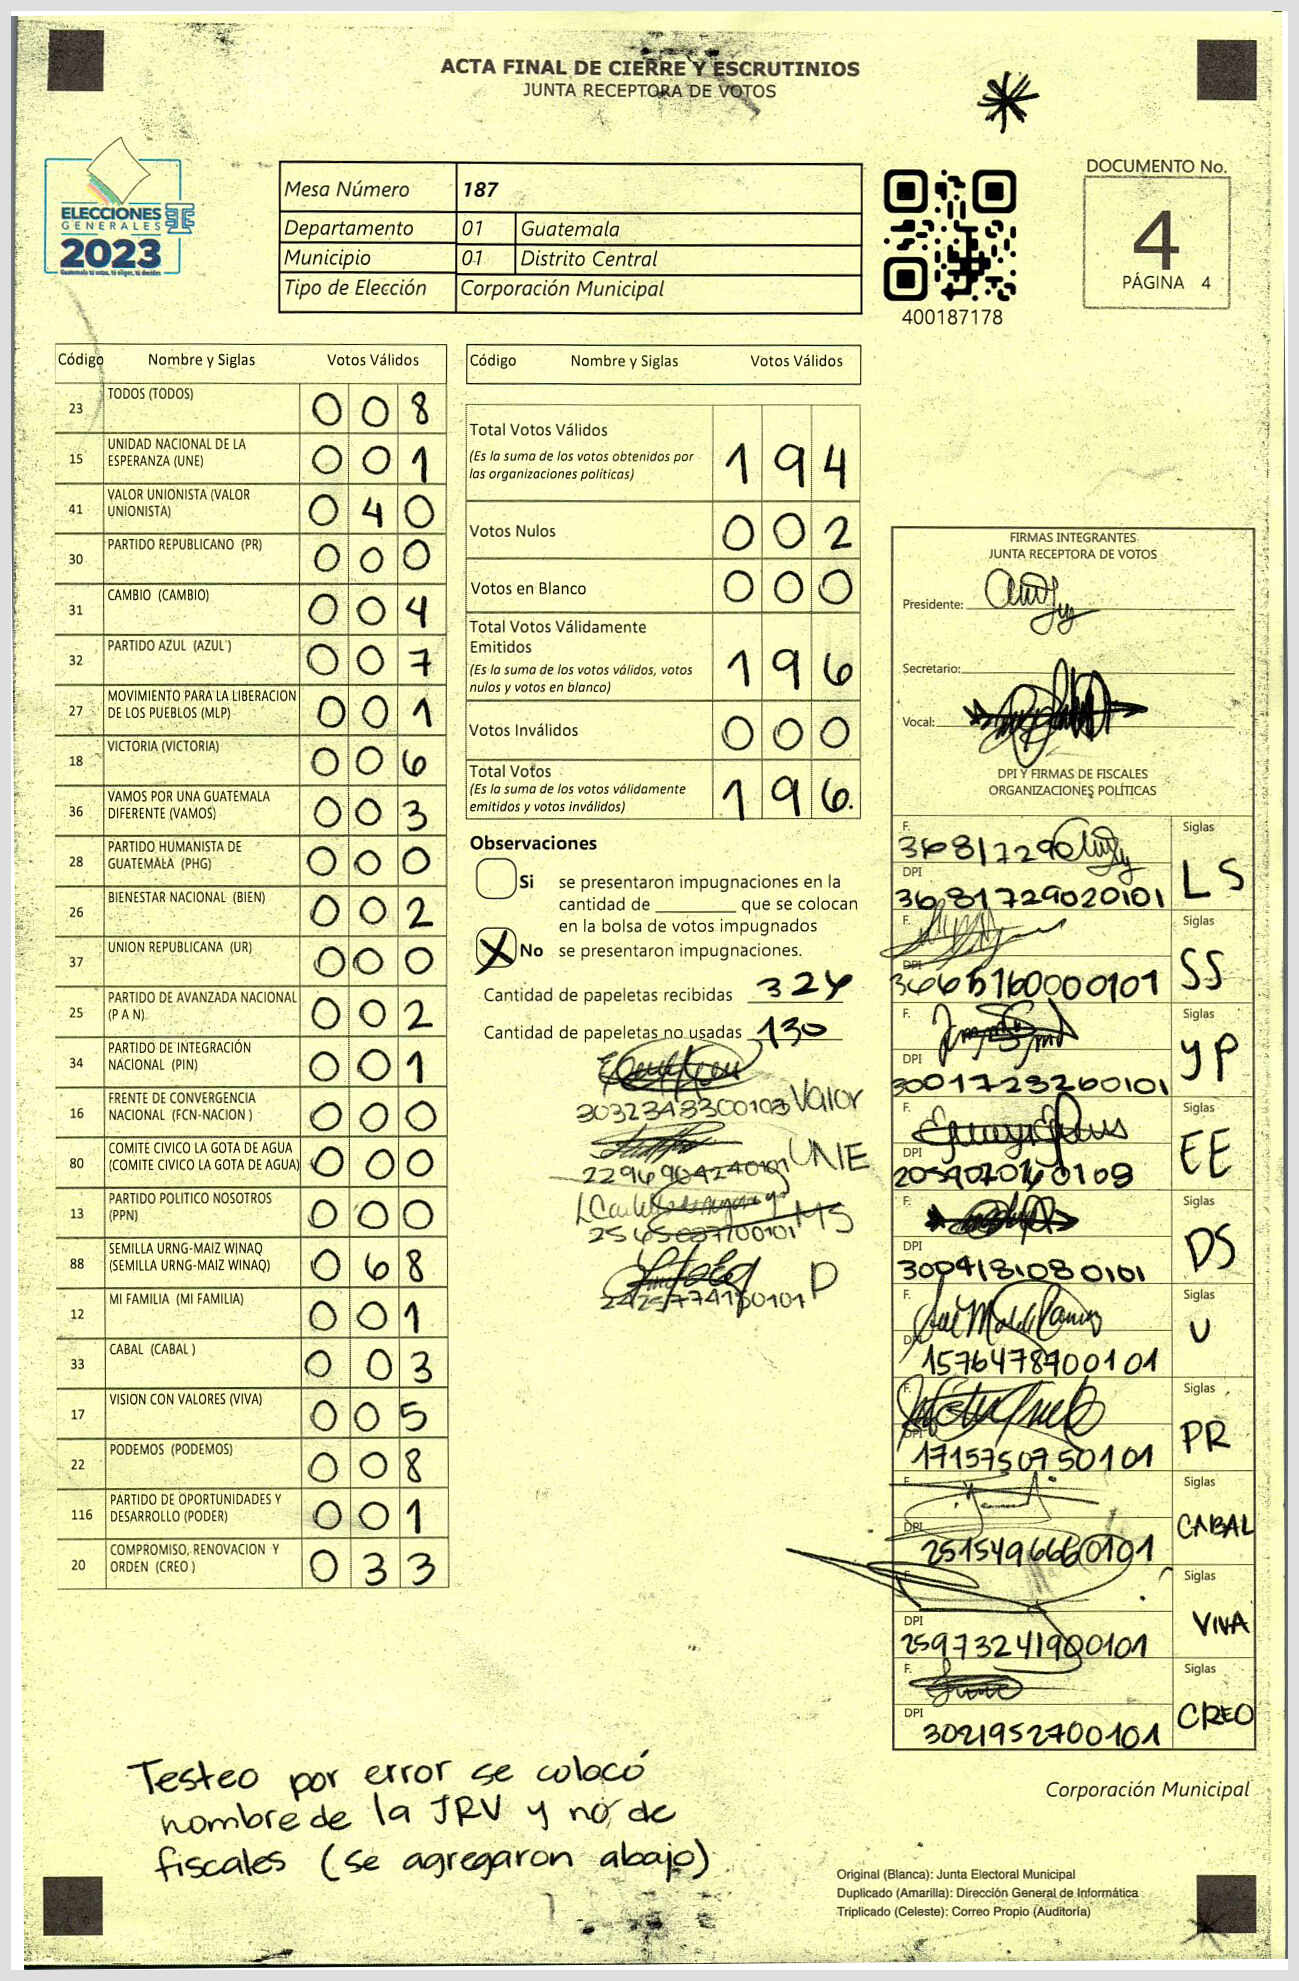 ACTA FINAL DE CIERRE Y ESCRUTINIOS
JUNTA RECEPTORA DE VOTOS
ELECCIONES
GENERALES
2023
Guatemala tú votas, tú eliges, tú decides
Mesa Número 187
Departamento 01 Guatemala
Municipio 01 Distrito Central
Tipo de Elección Corporación Municipal
400187178
DOCUMENTO No.
4
PÁGINA 4
Código Nombre y Siglas Votos Válidos
23 TODOS (TODOS) 0 0 8
15 UNIDAD NACIONAL DE LA ESPERANZA (UNE) 0 0 1
41 VALOR UNIONISTA (VALOR UNIONISTA) 0 4 0
30 PARTIDO REPUBLICANO (PR) 0 0 0
31 CAMBIO (CAMBIO) 0 0 4
32 PARTIDO AZUL (AZUL) 0 0 7
27 MOVIMIENTO PARA LA LIBERACION DE LOS PUEBLOS (MLP) 0 0 1
18 VICTORIA (VICTORIA) 0 0 6
36 VAMOS POR UNA GUATEMALA DIFERENTE (VAMOS) 0 0 3
28 PARTIDO HUMANISTA DE GUATEMALA (PHG) 0 0 0
26 BIENESTAR NACIONAL (BIEN) 0 0 2
37 UNION REPUBLICANA (UR) 0 0 0
25 PARTIDO DE AVANZADA NACIONAL (P A N) 0 0 2
34 PARTIDO DE INTEGRACIÓN NACIONAL (PIN) 0 0 1
16 FRENTE DE CONVERGENCIA NACIONAL (FCN-NACION ) 0 0 0
80 COMITE CIVICO LA GOTA DE AGUA (COMITE CIVICO LA GOTA DE AGUA) 0 0 0
13 PARTIDO POLITICO NOSOTROS (PPN) 0 0 0
88 SEMILLA URNG-MAIZ WINAQ (SEMILLA URNG-MAIZ WINAQ) 0 6 8
12 MI FAMILIA (MI FAMILIA) 0 0 1
33 CABAL (CABAL ) 0 0 3
17 VISION CON VALORES (VIVA) 0 0 5
22 PODEMOS (PODEMOS) 0 0 8
116 PARTIDO DE OPORTUNIDADES Y DESARROLLO (PODER) 0 0 1
20 COMPROMISO, RENOVACION Y ORDEN (CREO ) 0 3 3
Código Nombre y Siglas Votos Válidos
Total Votos Válidos 1 9 4
(Es la suma de los votos obtenidos por
las organizaciones políticas)
Votos Nulos 0 0 2
Votos en Blanco 0 0 0
Total Votos Válidamente
Emitidos 1 9 6
(Es la suma de los votos válidos, votos
nulos y votos en blanco)
Votos Inválidos 0 0 0
Total Votos 1 9 6.
(Es la suma de los votos válidamente
emitidos y votos inválidos)
Observaciones
Si se presentaron impugnaciones en la
cantidad de ________ que se colocan
en la bolsa de votos impugnados
X No se presentaron impugnaciones.
Cantidad de papeletas recibidas 324
Cantidad de papeletas no usadas 130
Valor
UNE
MS
P
FIRMAS INTEGRANTES
JUNTA RECEPTORA DE VOTOS
Presidente:
Secretario:
Vocal:
DPI Y FIRMAS DE FISCALES
ORGANIZACIONES POLÍTICAS
F. Siglas
DPI 3681729020101 LS
F. Siglas
DPI SS
F. Siglas
DPI 3001723260101 YP
F. Siglas
DPI EE
F. Siglas
DPI 3004181080101 DS
F. Siglas
DPI 1576478700101 U
F. Siglas
DPI 1715750750101 PR
F. Siglas
DPI CABAL
F. Siglas
DPI 2597324190101 VIVA
F. Siglas
DPI 3021952700101 CREO
Testeo por error se colocó
nombre de la JRV y no de
fiscales (se agregaron abajo)
Corporación Municipal
Original (Blanca): Junta Electoral Municipal
Duplicado (Amarilla): Dirección General de Informática
Triplicado (Celeste): Correo Propio (Auditoría)